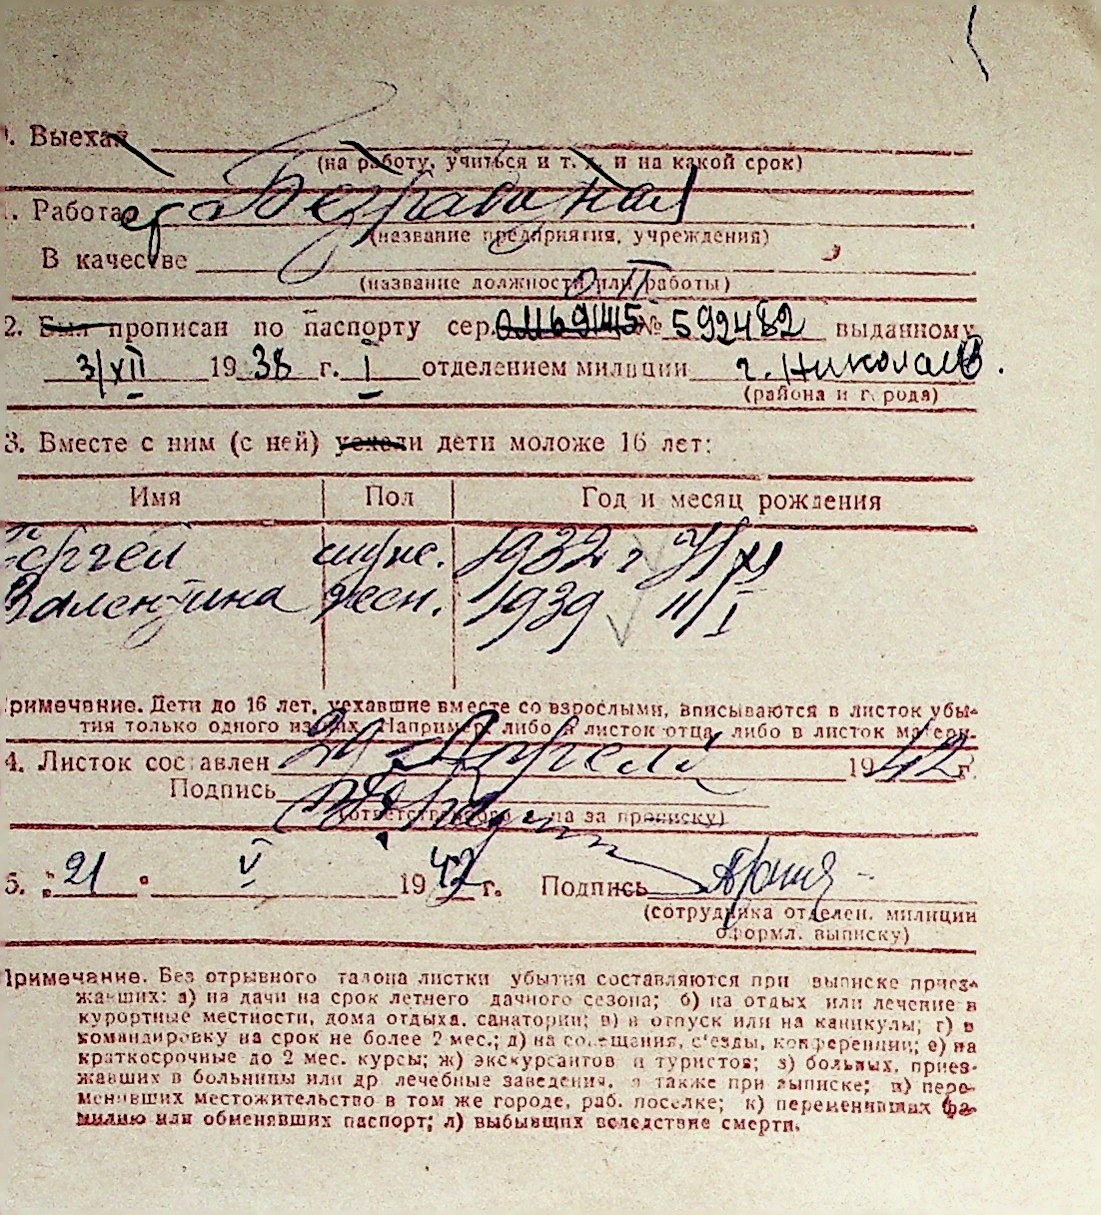 . Выехал
(на работу, учиться и т. д. и на какой срок)
. Работает Безработная
(название предприятия, учреждения)
В качестве
(название должности или работы)
2. Был прописан по паспорту сер. № 592482 выданному
3/XII 1938 г. I отделением милиции г. Николаев.
(района и города)
3. Вместе с ним (с ней) уехали дети моложе 16 лет:
Имя Пол Год и месяц рождения
Сергей муж. 1932 г
Валентина жен. 1939 11/I
римечание. Дети до 16 лет, уехавшие вместе со взрослыми, вписываются в листок убы-
тия только одного из них. Например: либо в листок отца, либо в листок матери.
4. Листок составлен 29 Апреля 1942 г.
Подпись
(ответственного лица за прописку)
5. "21" V 1942 г. Подпись
(сотрудника отделен. милиции
оформл. выписку)
Примечание. Без отрывного талона листки убытия составляются при выписке приез-
жавших: а) на дачи на срок летнего дачного сезона; б) на отдых или лечение в
курортные местности, дома отдыха, санатории; в) в отпуск или на каникулы; г) в
командировку на срок не более 2 мес.; д) на совещания, с'езды, конференции; е) на
краткосрочные до 2 мес. курсы; ж) экскурсантов и туристов; з) больных, приез-
жавших в больницы или др лечебные заведения, а также при выписке; и) пере-
менивших местожительство в том же городе, раб. поселке; к) переменивших фа-
милию или обменявших паспорт; л) выбывших вследствие смерти.